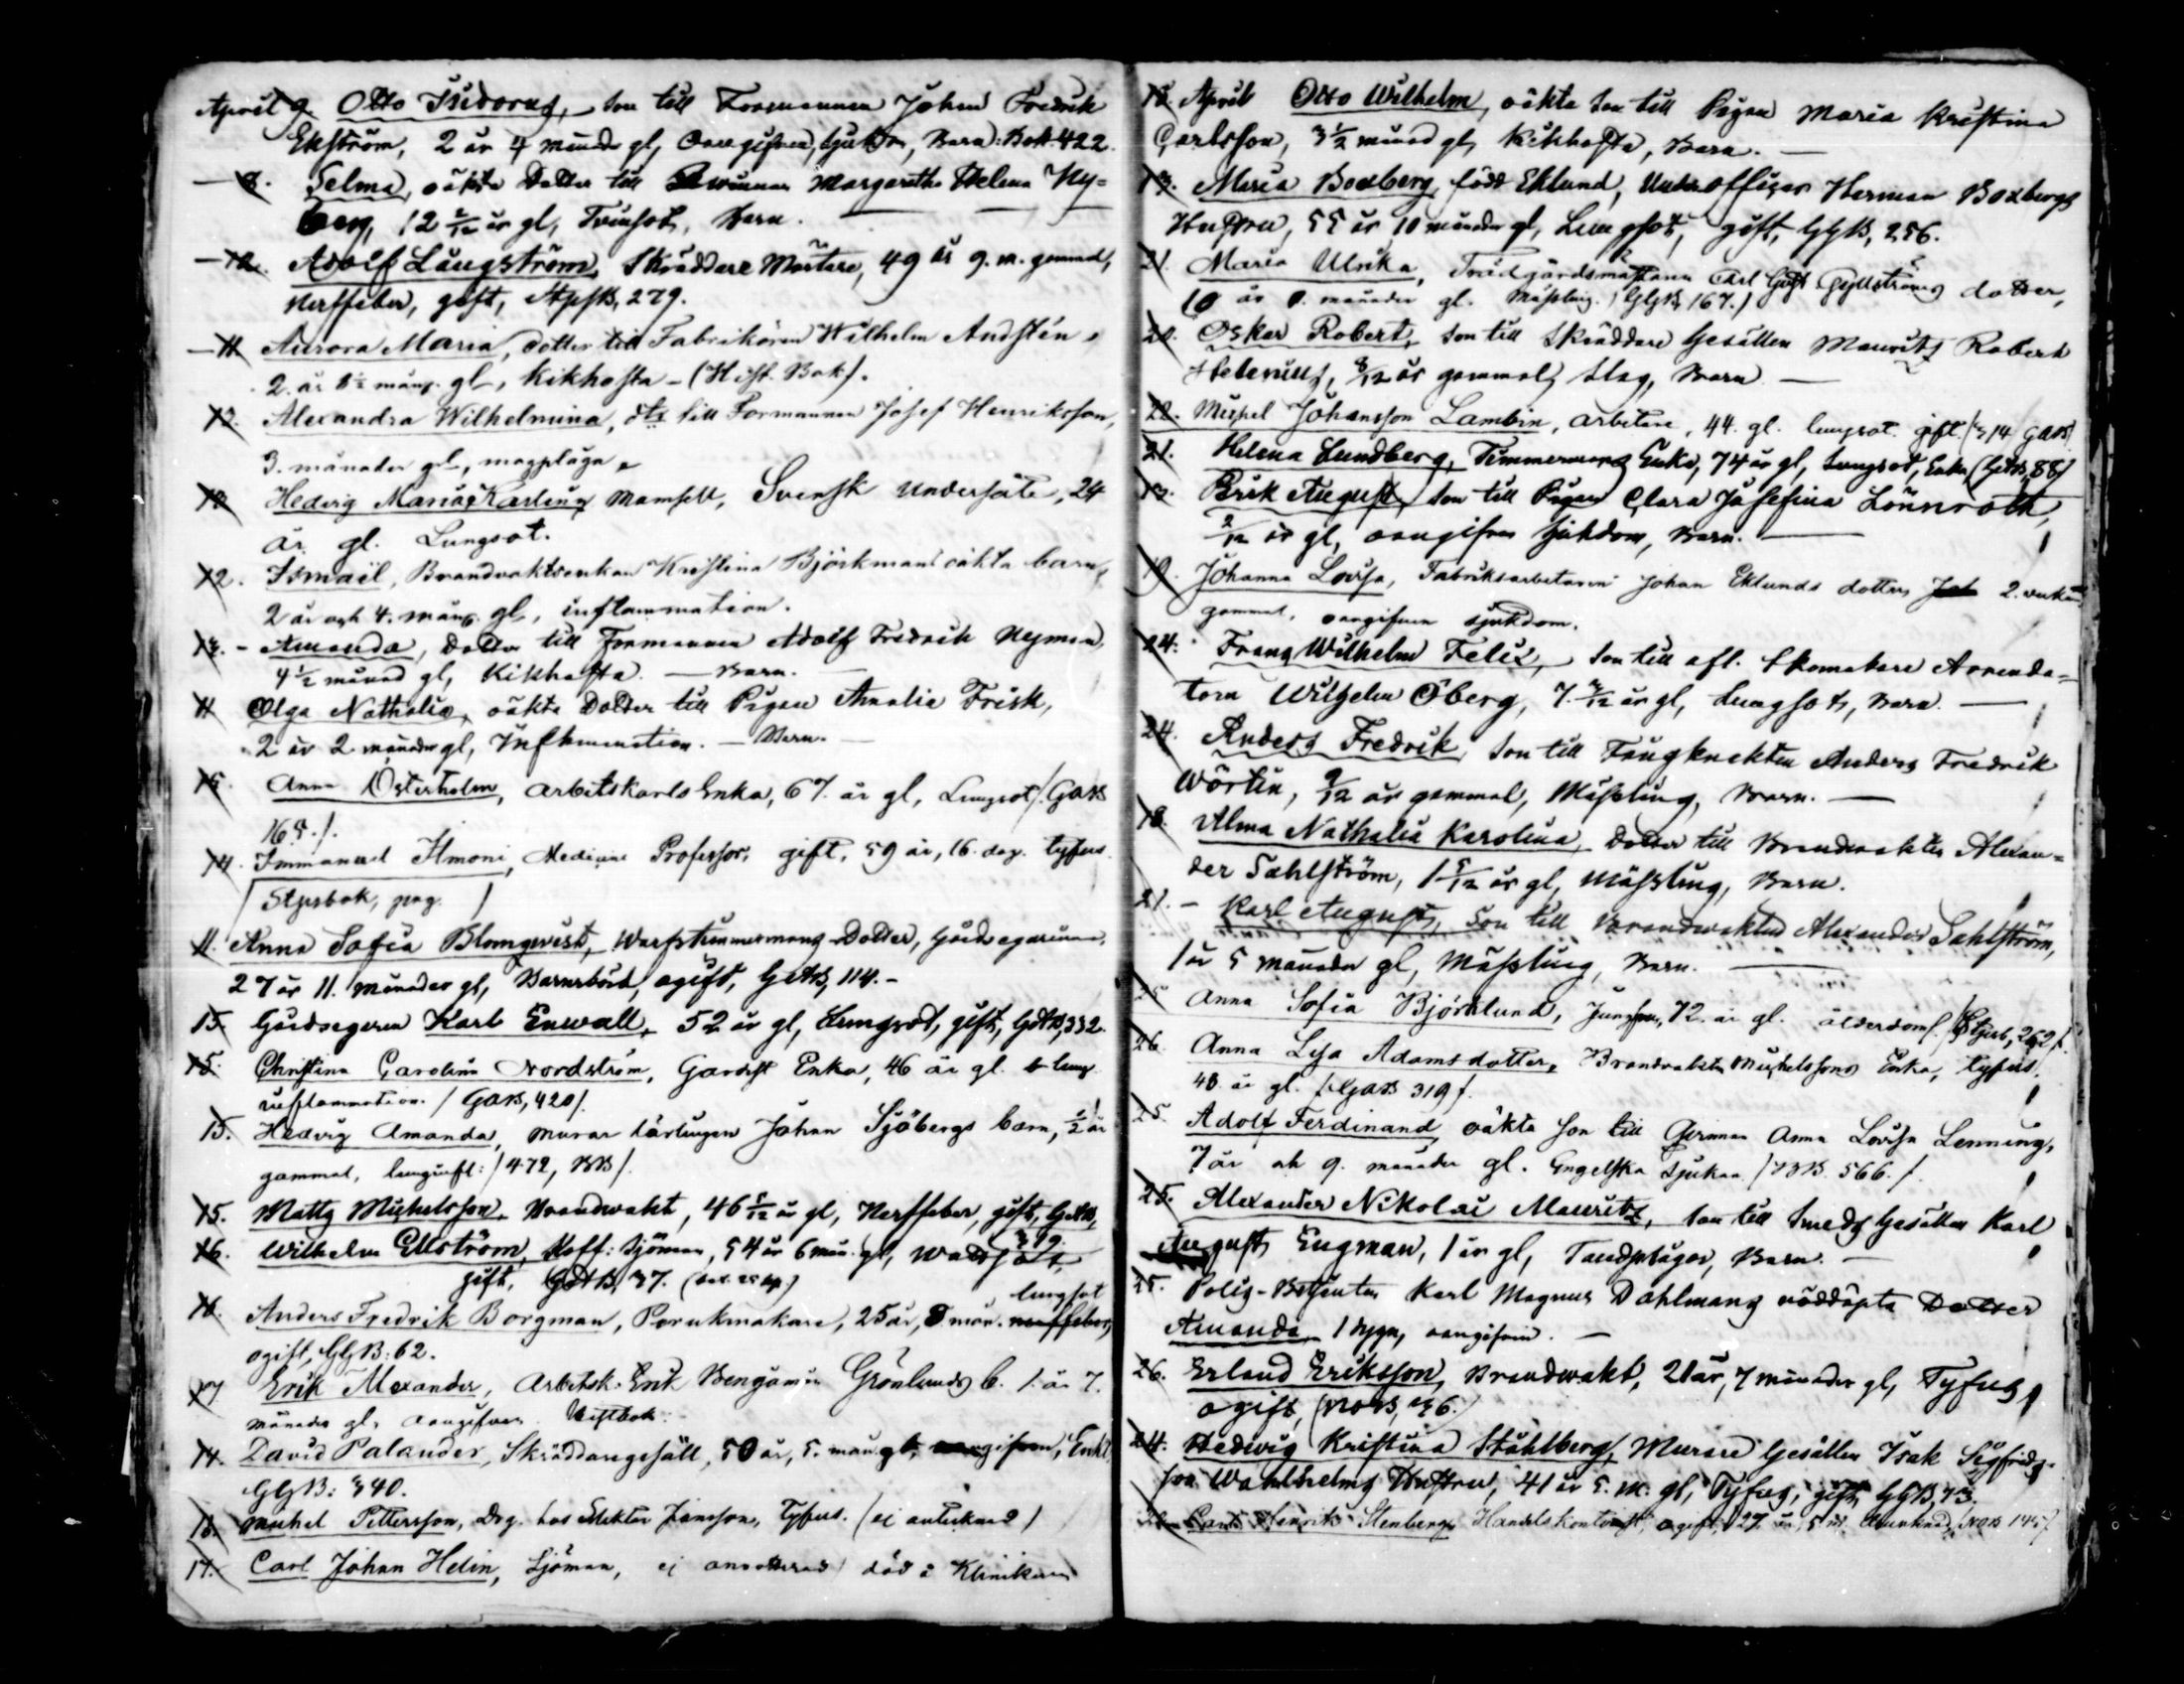 April 9. Otto Isidorus, son till Formannen Johan Fredrik
Ekström, 2 år 4 månader gl, oangifven sjukdom, Barn: Bok 422.
— 8. Selma, oäkta Dotter till Margaretha Helena Ny=
berg, 12 2/12 år gl, Tvinsot, Barn. —
— 12. Adolf Långström, Skräddare Mästare, 49 år 9. m. gammal,
Nerffeber, gift, StpsB, 279.
— 11. Aurora Maria, dotter till Fabrikören Wilhelm Andstén,
2. år 8½ mån. gl, Kikhosta – (Hist. Bok).
12. Alexandra Wilhelmina, dtr till Formannen Josef Henriksson,
3. månader gl, magplåga
10 Hedvig Maria Karlens Mamsell, Svensk Undersåte, 24
år gl. Lungsot.
12. Ismaël, Brandvaktsenkan Kristina Björkmans oäkta barn,
2 år och 4. mån. gl, inflammation.
13. – Amanda, Dotter till Formannen Adolf Fredrik Nyman,
4½ månad gl, Kikhosta. — Barn.
11 Olga Nathalia, oäkta Dotter till Pigan Amalia Frisk,
2 år 2 månader gl, Inflammation. — Barn. —
15. Anna Österholm, arbetskarls Enka, 67. år gl, Lungsot /: GAB
165./.
14. Immanuel Ilmoni, Medicine Professor, gift, 59 år, 16. dag. tyfus.
/ Stpsbok, pag. /
11. Anna Sofia Blomqvist, Warfstimmermans Dotter, Gårdsegarinna,
27 år 11. månader gl, Barnsbörd, ogift, GAB, 114. –
15. Gårdsegaren Karl Enwall, 52 år gl, Lungsot, gift, GAB, 332.
15. Christina Carolina Nordström, Gardist Enka, 46 år gl. lung
inflammation. / GAB, 420/.
15. Hedvig Amanda, Murar lärlingen Johan Sjöbergs barn, ½ år
gammal, lunginfl: / 472, BB/.
15. Matts Michelsson, Brandwakt, 46 5/12 år gl, Nerffeber, gift, GAB,
16. Wilhelm Ellström, Koff: Sjöman, 54 år 6 mån. gl, Wattsot,
gift, GAB, 37.
lungsot
16. Anders Fredrik Borgman, Perukmakare, 25 år, 8 mån. nerffeber,
ogift, GGB: 62.
17 Erik Alexander, Arbetsk. Erik Benjamin Grönlunds b. 1. år 7.
månader gl, oangifven.
14. David Palander, Skräddaregesäll, 50 år, 5. mån. gl, oangifven,
GGB: 340.
13. Michel Pettersson, Drg. hos Jansson, Tyfus. (ej antecknad)
17. Carl Johan Helin, Sjöman, ej död å Kliniken
18. April Otto Wilhelm, oäkta son till Pigan Maria Kristina
Carlsson, 3½ månad gl, Kikhosta, Barn. —
19. Maria Boxberg, född Eklund, Underofficer Herman Boxbergs
Hustru, 55 år 10 månader gl, Lungsot, gift, GGB, 256.
21. Maria Ulrika, Trädgårdsmästaren Carl Gust Gyllströms dotter,
10 år 8. månader gl. Mässling. / GGB, 167./
20. Oskar Robert, son till Skräddare Gesällen Maurits Robert
Helenius, 8/12 år gammal, Slag, Barn —
22. Michel Johansson Lambin, arbetare, 44. gl. lungsot. gift. / 314 GAB/
21. Helena Lundberg, Timmermans Enka, 74 år gl, Lungsot, Enka / GAB, 88/
19. Erik August, son till Pigan Clara Josefina Lönnroth,
2/12 år gl, oangifven sjukdom, Barn. —
19. Johanna Lovisa, Fabriksarbetaren Johan Eklunds dotter, 2. veckor
gammal, oangifven sjukdom.
24. Frans Wilhelm Felix, son till afl. Skomakare Arrenda=
torn Wilhelm Öberg, 7. 3/12 år gl, Lungsot, Barn. —
24. Anders Fredrik, son till Fångknekten Anders Fredrik
Wörtin, 9/12 år gammal, Mässling, Barn. —
18. Alma Nathalia Karolina, dotter till Brandwakten Alexan=
der Sahlström, 1 5/12 år gl, Mässling, Barn.
21. – Karl August, son till Brandwakten Alexander Sahlström,
1 år 5 månader gl, Mässling, Barn. —
25 Anna Sofia Björklund, Jungfru, 72. år gl. ålderdoms. / Stpsb, 262/.
26. Anna Lisa Adamsdotter, Brandvakten Michelssons Enka, tyfus.
48. år gl. / GAB 319/.
25. Adolf Ferdinand, oäkta son till Anna Lovisa Lenning,
7 år och 9. månader gl. Engelska Sjukan / BB. 566./.
25. Alexander Nikolai Maurits, son till Smeds Gesällen Karl
August Engman, 1 år gl, Tandplågor, Barn. —
25. Polis-Betjenten Karl Magnus Dahlmans nöddöpta Dotter
Amanda, 1 dygn, oangifven. —
26. Erland Eriksson, Brandwakt, 21 år, 7 månader gl, Tyfus,
ogift,
24. Hedvig Kristina Ståhlberg, Murare Gesällen Isak Sigfrids-
son Wahlhelms Hustru, 41 år 5. m. gl, Tyfus, gift, GGB, 73.
Carl Henrik Stenberg, Handelskontorist, ogift, 27 år, 5 m. NOB 145/